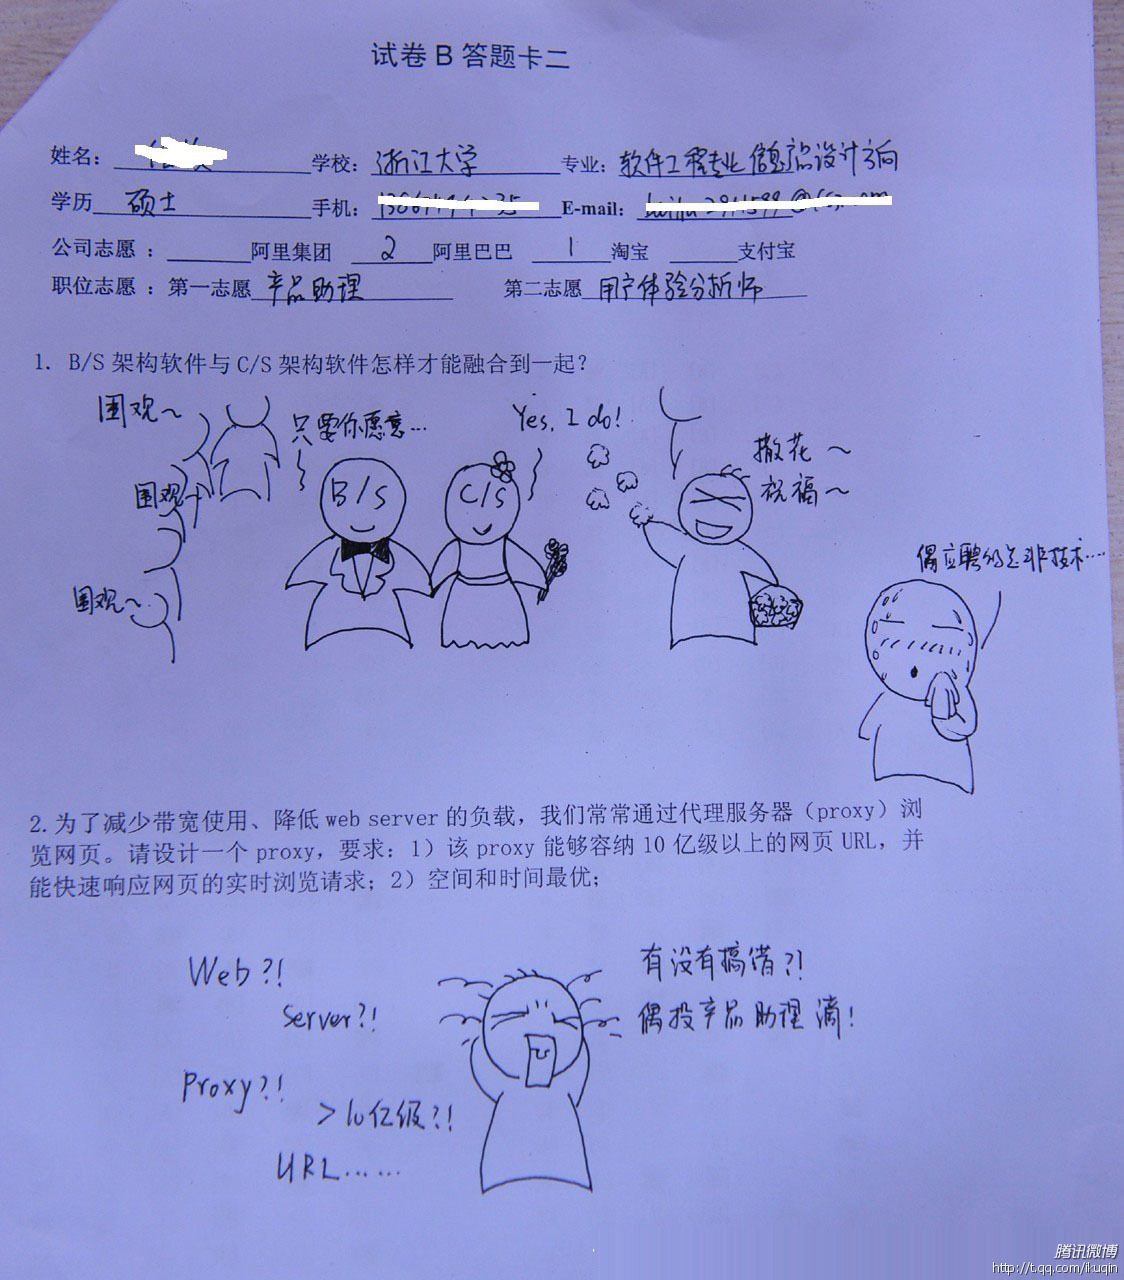 试卷 B 答题卡二
姓名： 学校：浙江大学 专业：软件工程专业 信息产品设计方向
学历 硕士 手机： E-mail：
公司志愿 ： 阿里集团 2 阿里巴巴 1 淘宝 支付宝
职位志愿 ：第一志愿 产品助理 第二志愿 用户体验分析师
1. B/S 架构软件与 C/S 架构软件怎样才能融合到一起？
围观～
只要你愿意…
Yes, I do!
撒花～
祝福～
围观～
B/S
C/S
围观～
偶应聘的是非技术….
2.为了减少带宽使用、降低 web server 的负载，我们常常通过代理服务器（proxy）浏
览网页。请设计一个 proxy，要求：1）该 proxy 能够容纳 10 亿级以上的网页 URL，并
能快速响应网页的实时浏览请求；2）空间和时间最优；
Web?!
Server?!
Proxy?!
>10亿级?!
URL……
有没有搞错?!
偶投产品助理滴!
腾讯微博
http://t.qq.com/ikuqin